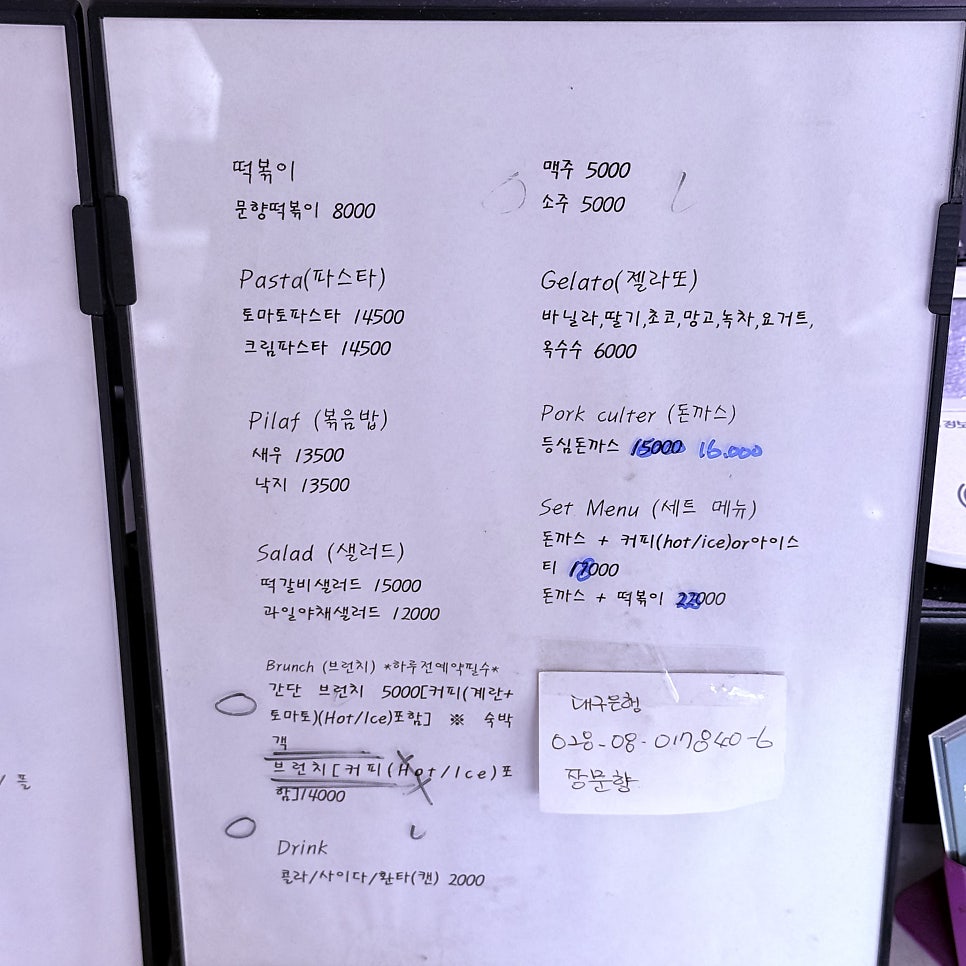 떡볶이
문향떡볶이 8000
Pasta(파스타)
토마토파스타 14500
크림파스타 14500
Pilaf (볶음밥)
새우 13500
낙지 13500
Salad (샐러드)
떡갈비샐러드 15000
과일야채샐러드 12000
Brunch (브런치) *하루전예약필수*
간단 브런치 5000[커피(계란+
토마토)(Hot/Ice)포함] ※ 숙박
객
브런치[커피(Hot/Ice)포
함]14000
Drink
콜라/사이다/환타(캔) 2000
맥주 5000
소주 5000
Gelato(젤라또)
바닐라,딸기,초코,망고,녹차,요거트,
옥수수 6000
Pork culter (돈까스)
등심돈까스 15000 16.000
Set Menu (세트 메뉴)
돈까스 + 커피(hot/ice)or아이스
티
돈까스 + 떡볶이
대구은행
028-08-017840-6
장문향
/ 플